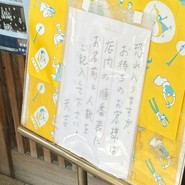 恐れ入りますが
お待ちのお客様は
店内の順番表に
お名前と人数を
ご記入して下さい